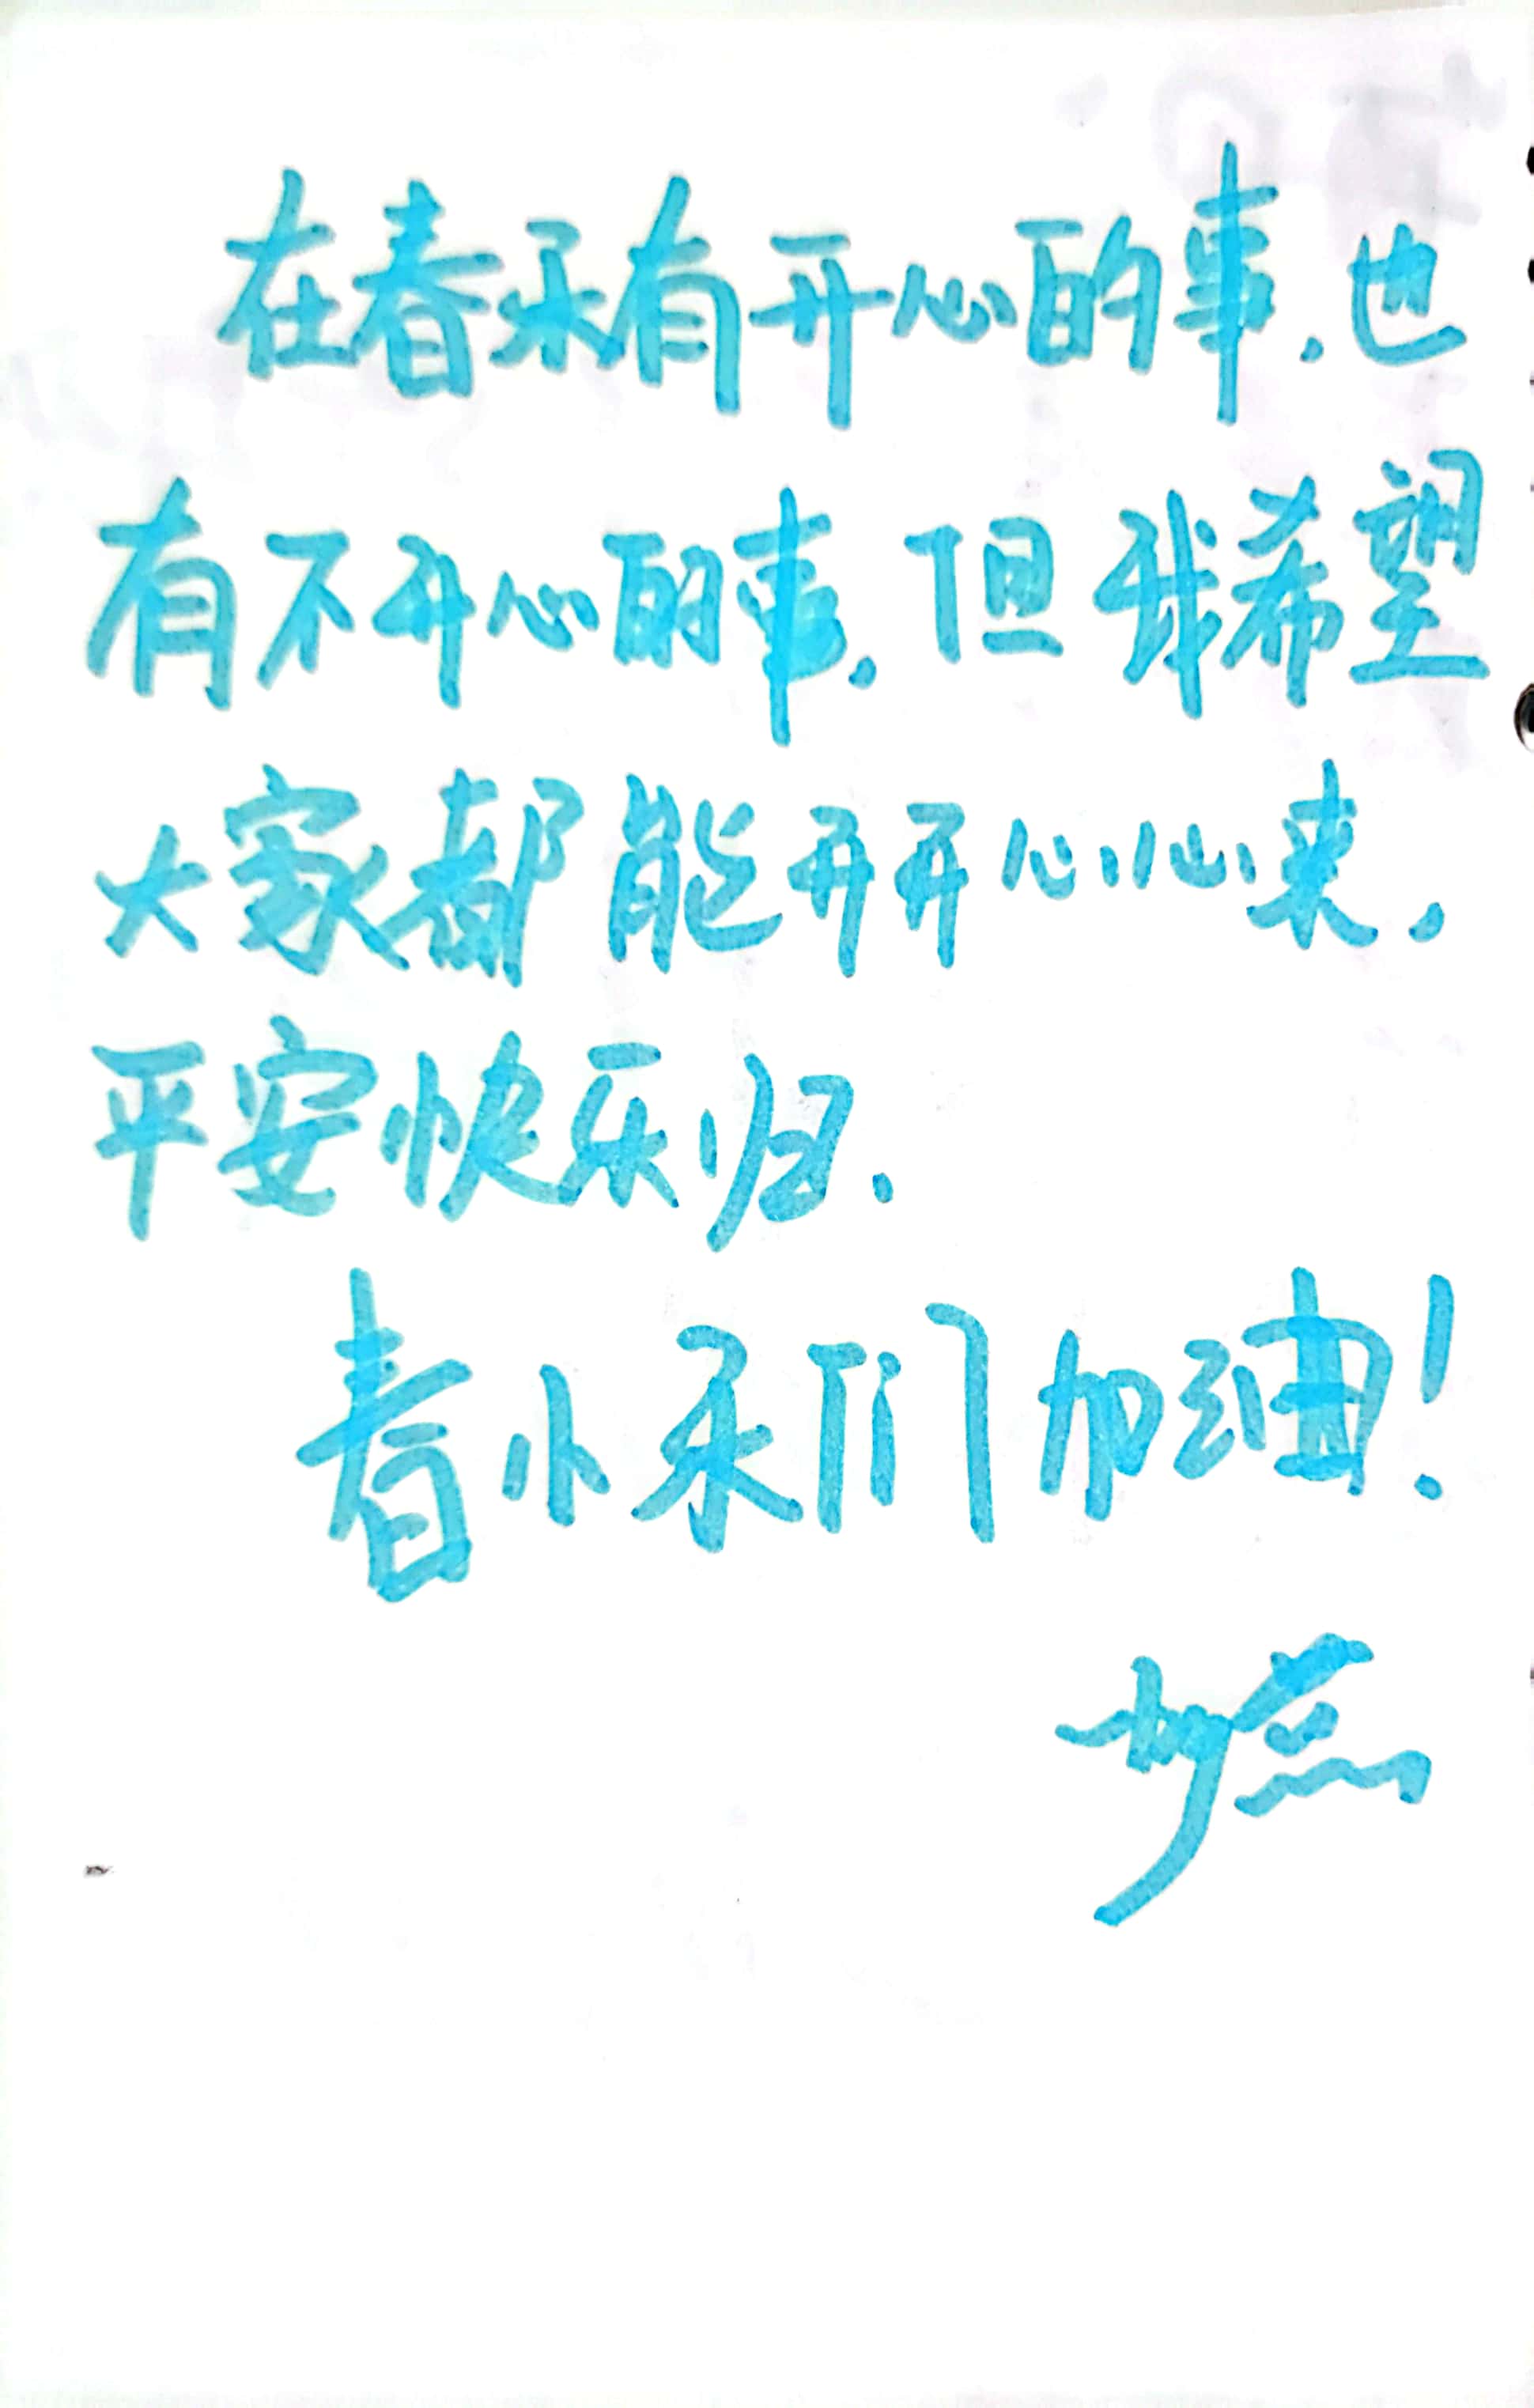 在春禾有开心的事，也
有不开心的事，但我希望
大家都能开开心心来，
平安快乐归.
春小禾们加油！